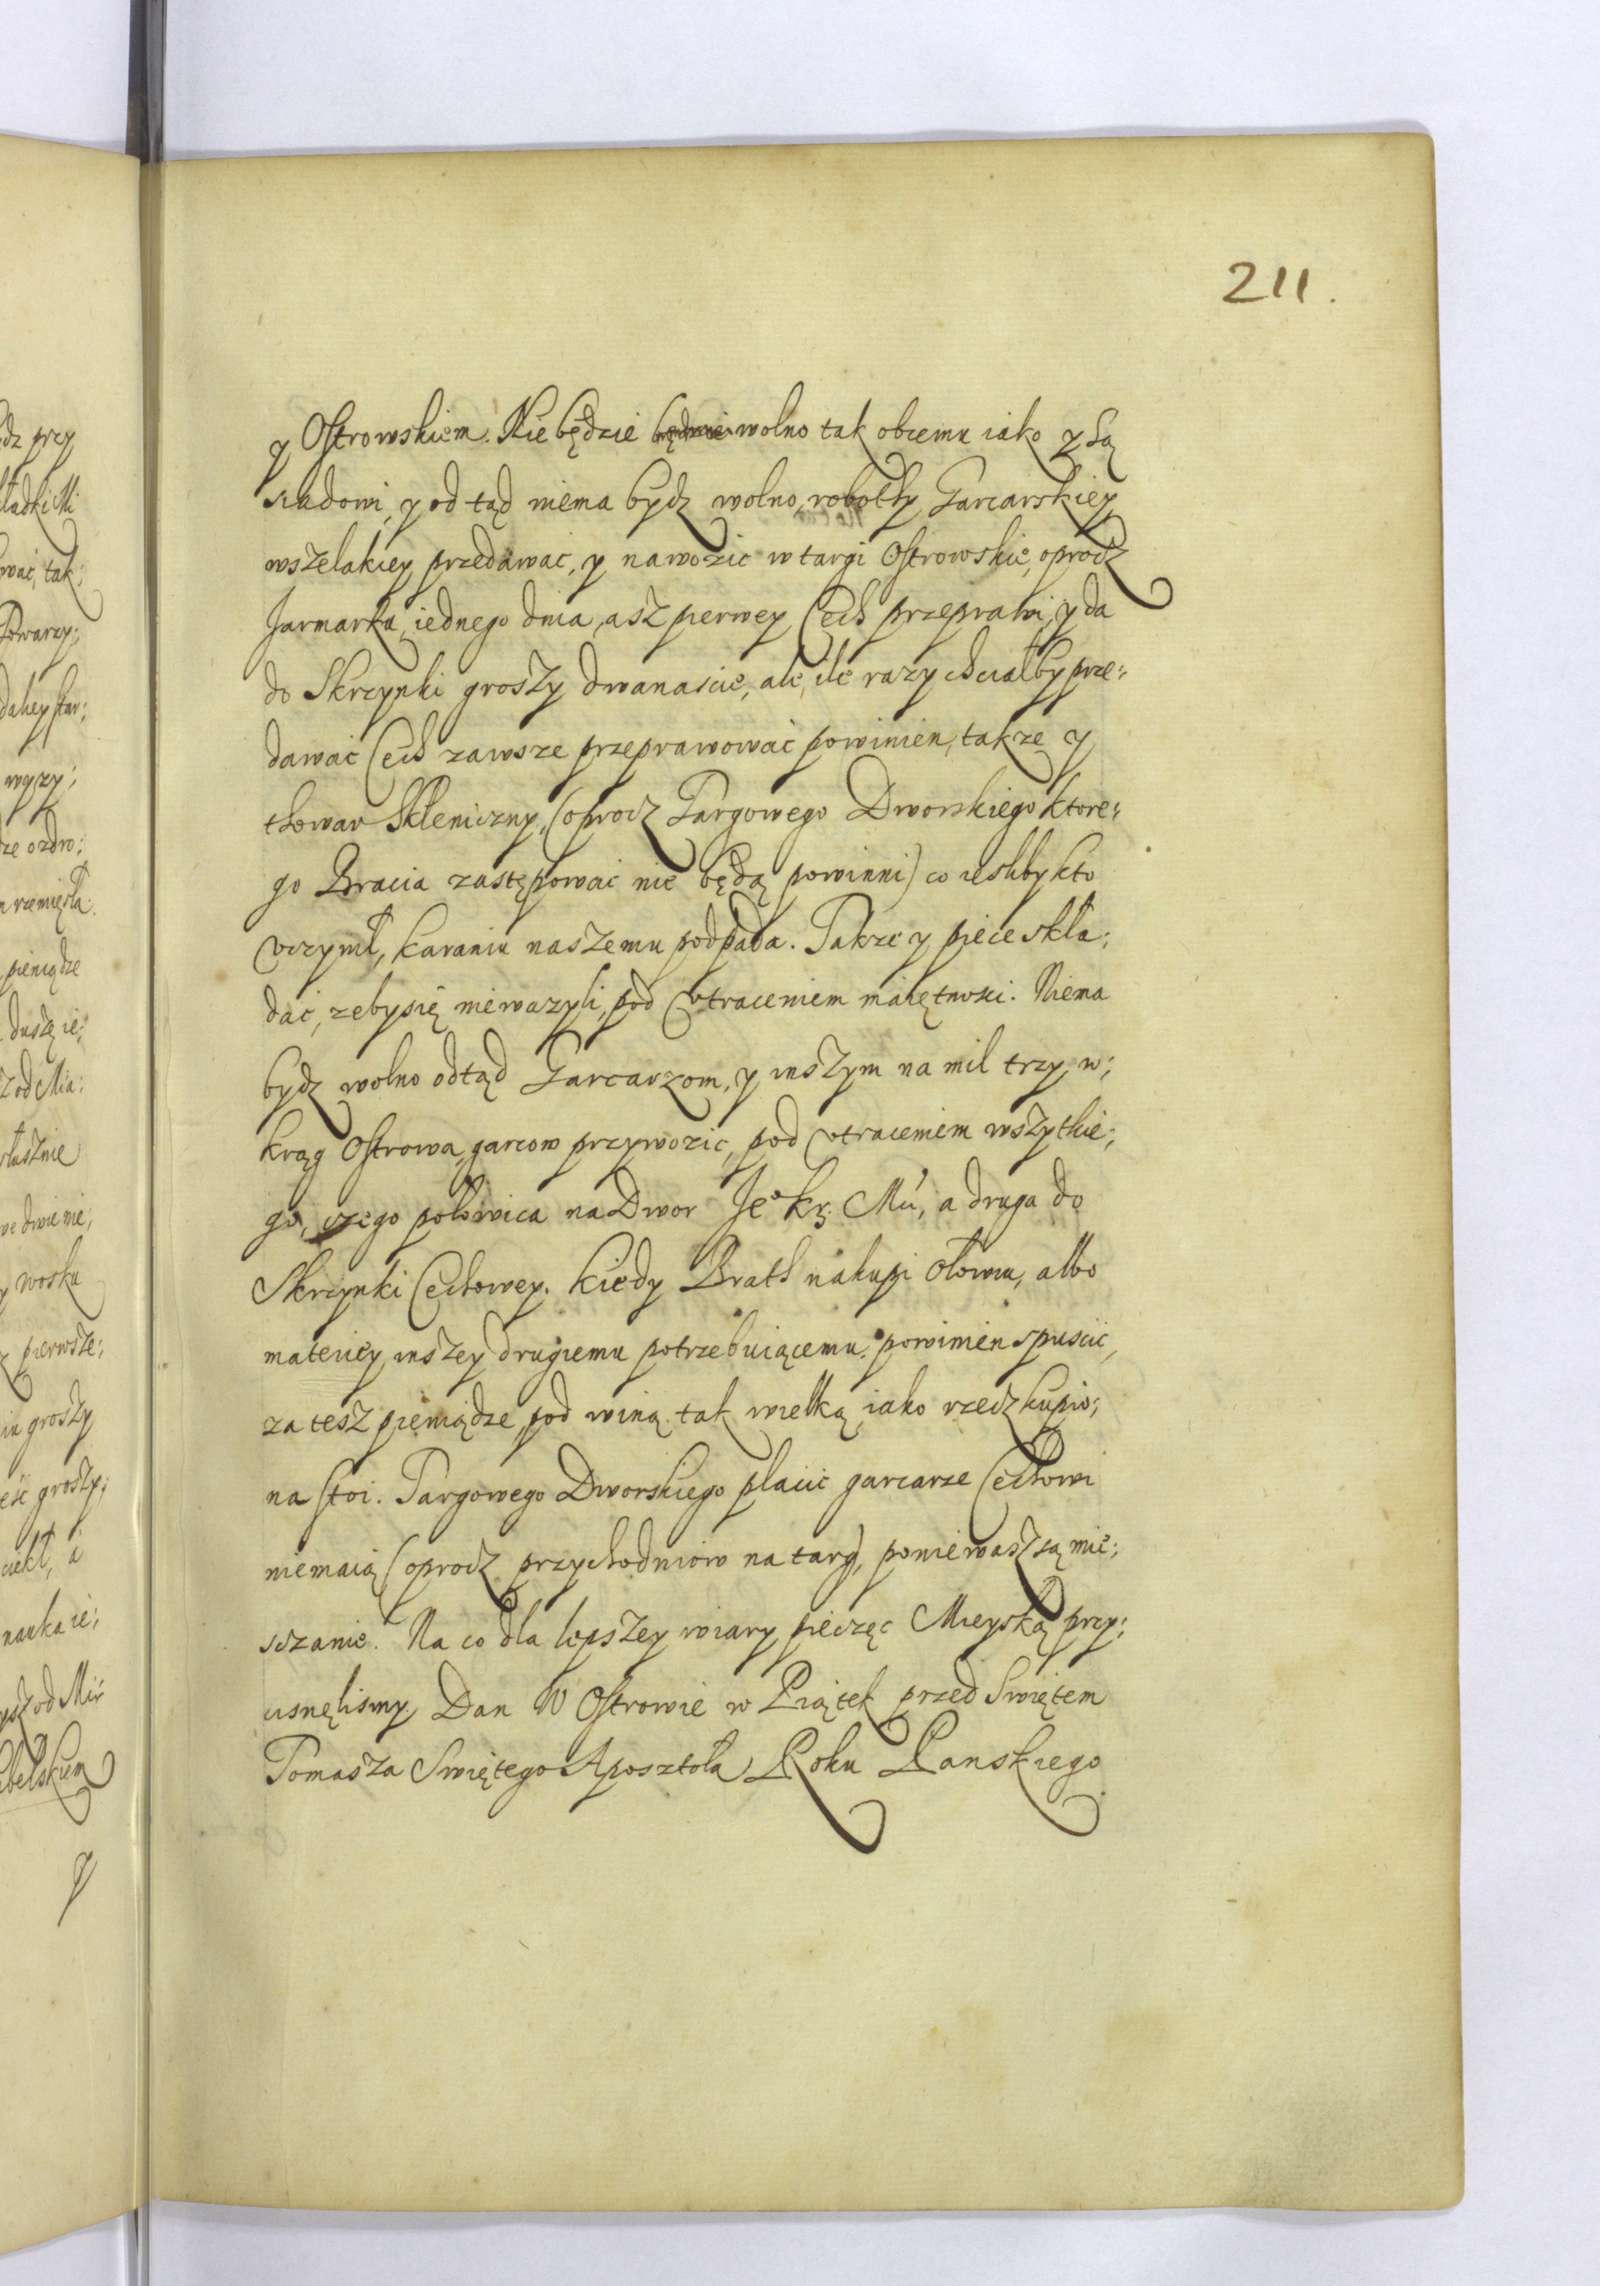 211.
y Ostrowskiem. Nie będzie wolno tak obcemu iako y Są
siadowi, y od tąd niema bydz wolno, robothy Garcarskiey
wszelakiey przedawac, y nawozic w targi Ostrowskie, oprocz
Jarmarku, iednego dnia, asz pierwey Cech przeprawi, y da
do Skrzynki groszy dwanascie, ale, ile razy chciałby prze:
dawać Cech zawsze przeprawować powinien, także y
thowar Skleniczny, (oprocz Targowego Dworskiego ktore:
go Bracia zastępować nie będą powinni) co iesliby kto
vczynił, karaniu naszemu podpada. Takze y piece skła:
dać, zeby się nieważyli, pod vtraceniem maiętnosci. Niema
bydz wolno odtąd Garcarzom, y inszym na mil trzy, w:
krąg Ostrowa, garcow przywozic, pod vtraceniem wszytkie:
go, czego połowica na Dwor Jeo Kr. Mci, a druga do
Skrzynki Cechowey. Kiedy Brath nakupi Ołowiu, albo
materiey inszey drugiemu potrzebuiącemu powinien spuscic,
za tesz pieniądze, pod winą tak wielką, iako rzecz kupio:
na stoi. Targowego Dworskiego płacic garcarze Cechowi
niemaią (oprocz przychodniow na targ), poniewasz są mie:
sczanie. Na co dla lepszey wiary pieczęc Mieyską przy:
cisnęlismy. Dan W Ostrowie w Piątek przed Swiętem
Tomasza Swiętego Aposztoła Roku Panskiego
dz przy
ładki Mi
wać, tak:
Towarzy:
daley star:
wyzy:
rzemięsła.
pieniądze
duszę ie:
z od Mia:
własznie
we dwie nie:
y wosku
z pierwsze:
groszy
groszy:
nauka ie:
od Mi
y